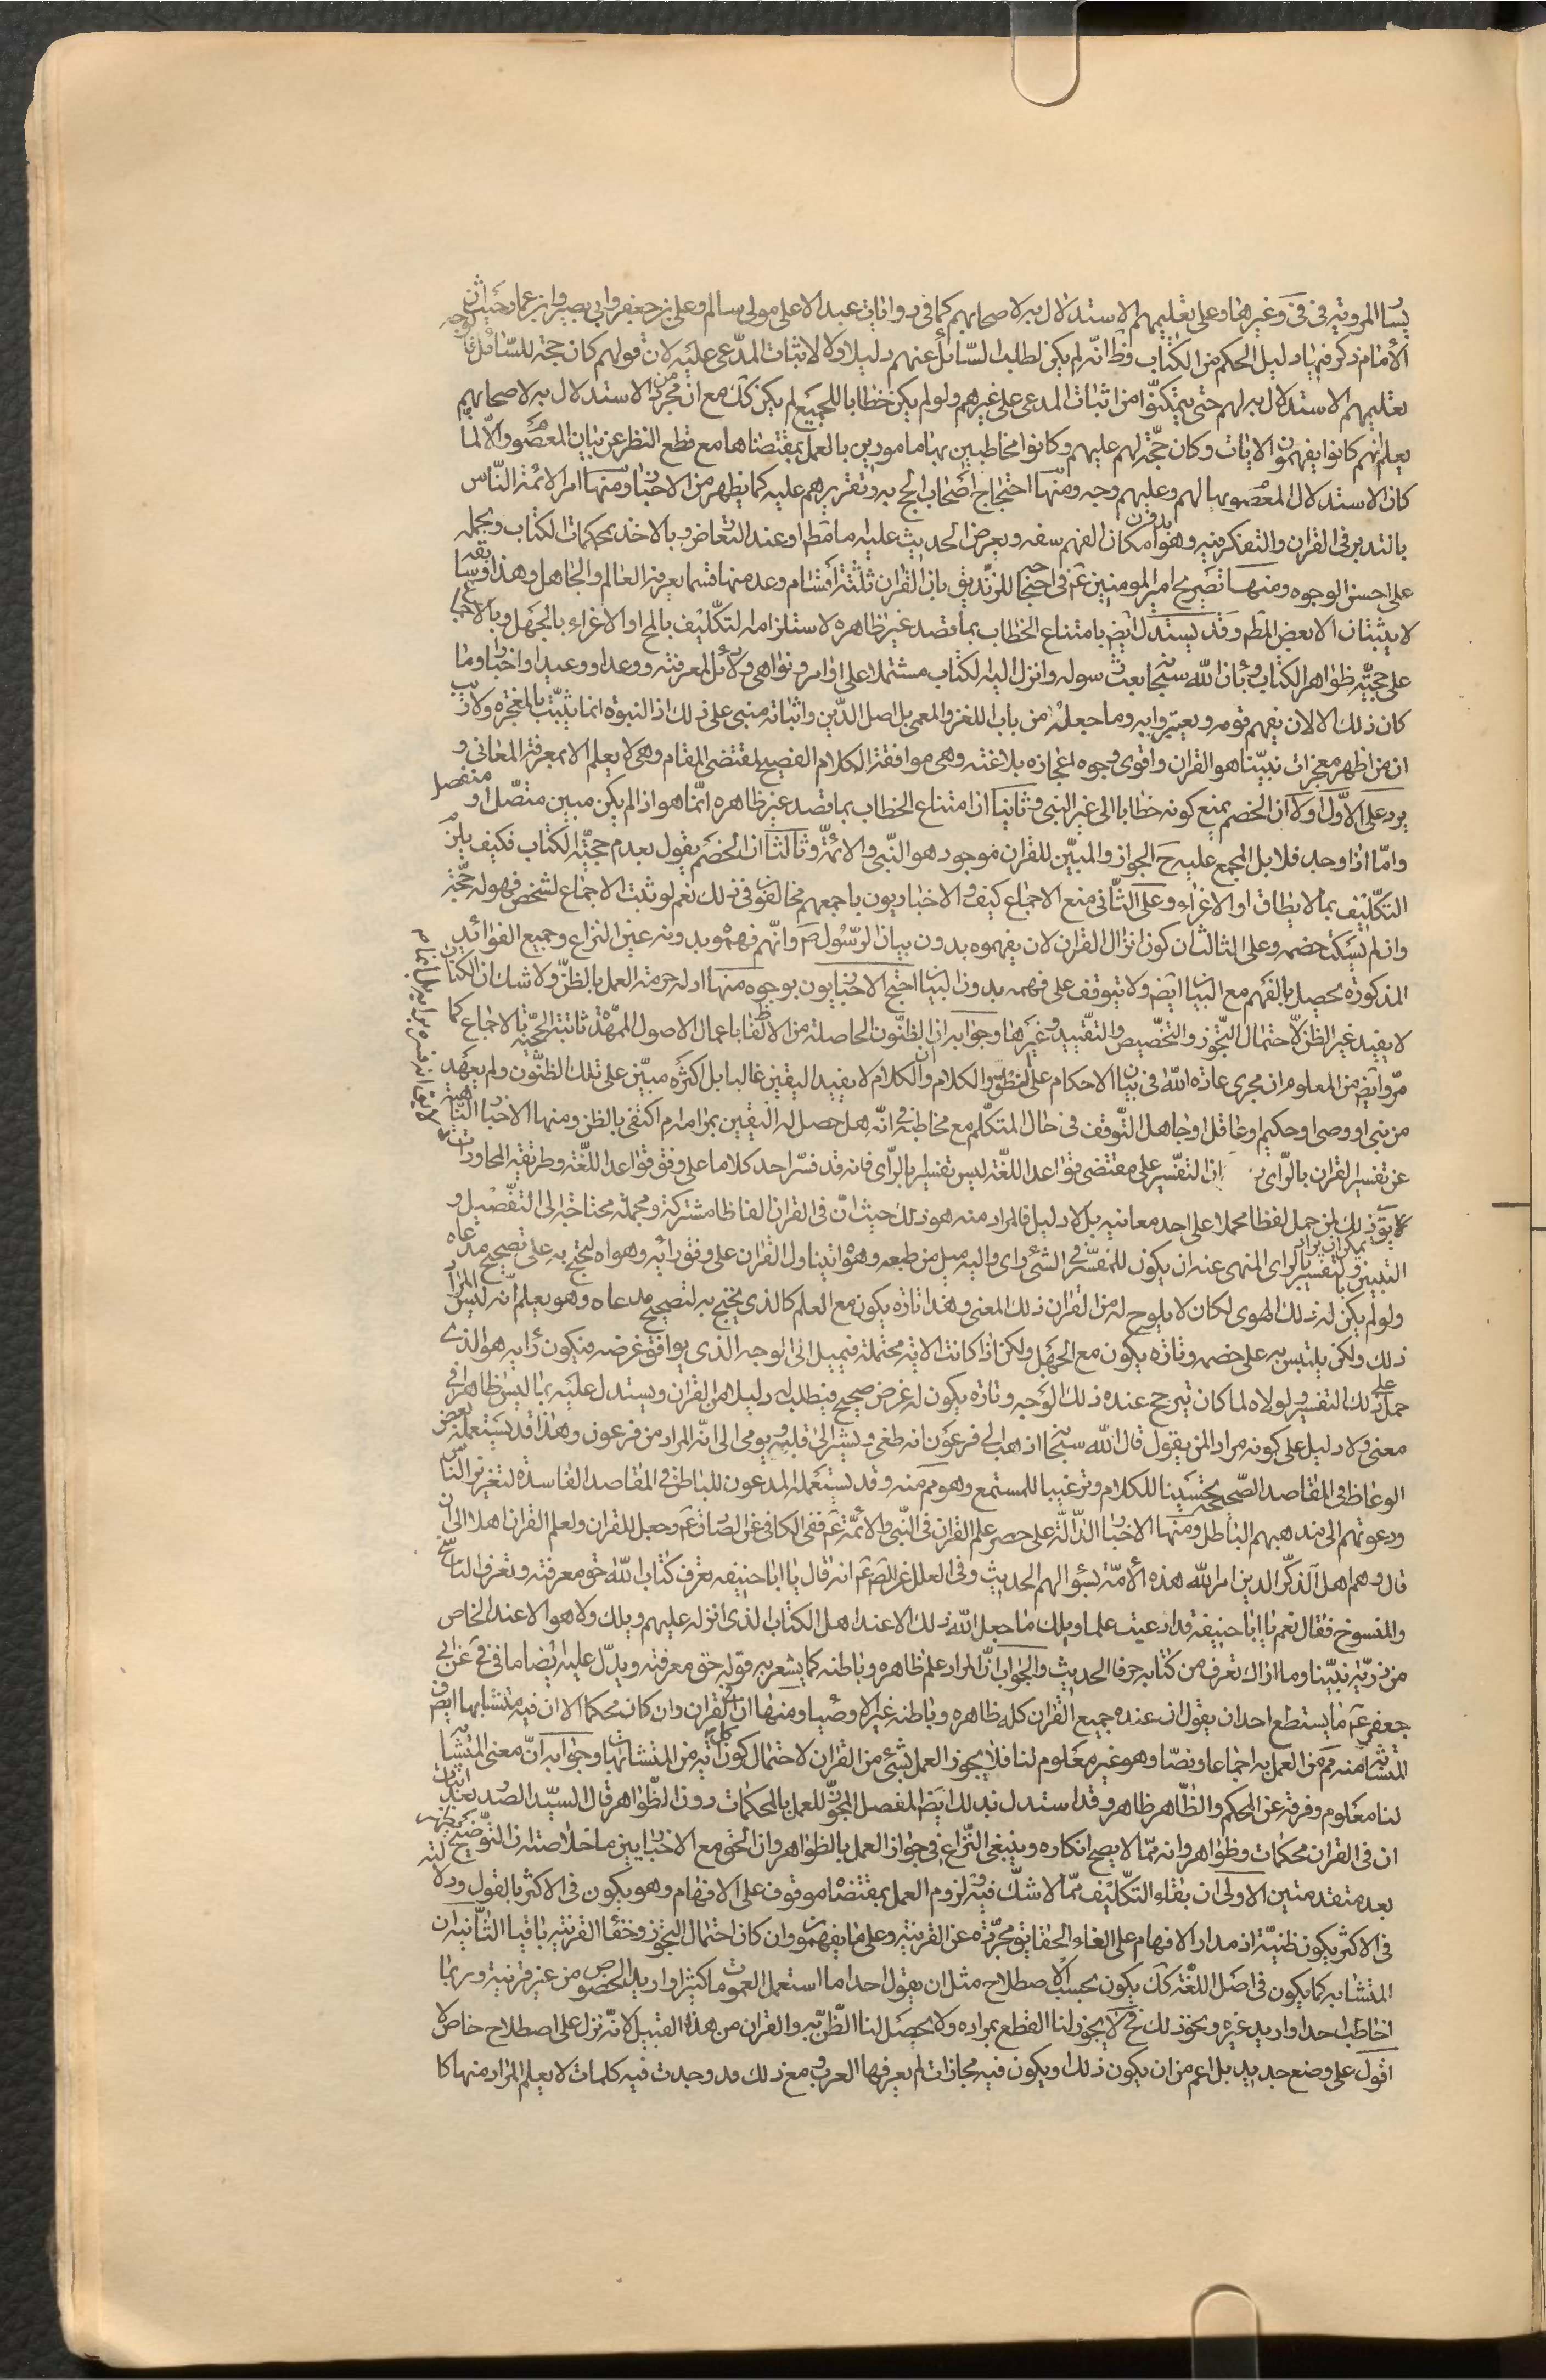 يسا المروية فى فى وغيرهما وعلى تعليمهم الاستدلال به لاصحابهم كما فى روايات عبد الاعلى مولى سالم وعلى بن جعفر وابى بصير وابن عمار حيث ان
الامام ذكر فيها دليل الحكم من الكتاب وظ انه لم يكن لطلب السائل عنهم دليلا ولا لاثبات المدعى عليه لان قولهم كان حجة للسائل لوجه
تعليمهم الاستدلال به لهم حتى يتمكنوا من اثبات المدعى على غيرهم ولو لم يكن خطابا للجميع لم يكن كك مع ان مجرد الاستدلال به لاصحابهم
يعلم انهم كانوا يفهمون الايات وكان حجة لهم عليهم وكانوا مخاطبين بها مامورين بالعمل بمقتضاها مع قطع النظر عن بيان المعصوم والا لما
كان الاستدلال المعصوم بها لهم وعليهم وجه ومنها احتجاج اصحاب الحج به وتقريرهم عليه كما يظهر من الاخبار ومنها امر الائمة الناس
بالتدبر فى القران والتفكر فيه وهو بدون امكان الفهم سفه وبعرض الحديث عليه مامط او عند التعارض وبالاخذ بمحكمات الكتاب وبحمله
على احسن الوجوه ومنها تصريح امير المومنين ع فى احتجاجه للزنديق بان القران ثلثة اقسام وعد منها قسما يعرفه العالم والجاهل وهذا وسابقه
لا يثبتان الا بعض المط وقد يستدل ايض بامتناع الخطاب بما قصد غير ظاهره لاستلزامه التكليف بالمح او الاغراء بالجهل وبالاجماع
على حجية ظواهر الكتاب وبان الله سبحانه بعث رسوله وانزل اليه الكتاب مشتملا على اوامر ونواهى ودلائل لمعرفته ووعدا ووعيدا واخبارا وما
كان ذلك الا لان يفهم قومه ويعتبروا به وما جعله من باب اللغز والمعمى بل اصل الدين واثباته مبنى على ذلك اذ النبوة انما يثبت بالمعجزة ولا ريب
ان من اظهر معجزات نبينا هو القران واقوى وجوه اعجازه بلاغته وهى موافقة الكلام الفصيح لمقتضى المقام وهى لا يعلم الا بمعرفة المعانى و
يرد على الاول اولا ان الخصم يمنع كونه خطابا الى غير النبى وثانيا ان امتناع الخطاب بما قصد غير ظاهره انما هو اذا لم يكن مبين متصل او منفصل
واما اذا وجد فلا بل المجمع عليه ح الجواز والمبين للقران موجود هو النبى والائمة وثالثا ان الخصم يقول بعدم حجية الكتاب فكيف يلزم
التكليف بما لا يطاق او الاغراء وعلى الثانى منع الاجماع كيف والاخباريون باجمعهم مخالفون فى ذلك نعم لو ثبت الاجماع لشخص فهو له حجة
وان لم يسكت خصمه وعلى الثالث ان كون انزال القران لان يفهموه بدون بيان الرسول ص وانهم فهموه بدونه عين النزاع وجميع الفوائد
المذكورة يحصل بالفهم مع البيان ايض ولا يتوقف على فهمه بدون البيان احتج الاخباريون بوجوه منها ادلة حرمة العمل بالظن ولا شك ان الكتاب
لا يفيد غير الظن لاحتمال التجوز والتخصيص والتقييد وغيرها وجوابه ان الظنون الحاصلة من الالفاظ باعمال الاصول الممهدة ثابتة الحجية بالاجماع كما
مر وايض من المعلوم ان مجرى عادة الله فى بيان الاحكام على النطق والكلام وان الكلام لا يفيد اليقين غالبا بل اكثره مبين على تلك الظنون ولم يعهد
من نبى او وصى او حكيم او عاقل او جاهل التوقف فى حال المتكلم مع مخاطبه فى انه هل حصل له اليقين بمرامه ام اكتفى بالظن ومنها الاخبار الناهية
عن تفسير القران بالراى ان التفسير على مقتضى قواعد اللغة ليس تفسيرا بالراى فانه قد فسر احد كلاما على وفق قواعد اللغة وطريقة المحاورات
لا يق ذلك لمن حمل لفظا محملا على احد معانيه بلا دليل فالمراد منه هو ذلك حيث ان فى القران الفاظا مشتركة ومجملة محتاجة الى التفصيل و
التبيين ويمكن ان يراد بالتفسير بالراى المنهى عنه ان يكون للمفسر فى الشئ راى واليه ميل من طبعه وهواه فيتناول القران على وفق رايه وهواه ليحتج به على تصحيح مدعاه
ولو لم يكن له ذلك الهوى لكان لا يلوح له من القران ذلك المعنى وهذا تارة يكون مع العلم كالذى يحتج به لتصحيح مدعاه وهو يعلم انه ليس المراد
ذلك ولكن يلتبس به على خصمه وتارة يكون مع الجهل ولكن اذا كانت الاية محتملة فيميل الى الوجه الذى يوافق غرضه فيكون رايه هو الذى
حمله على ذلك التفسير ولولاه لما كان يترجح عنده ذلك الوجه وتارة يكون له غرض صحيح فيطلب له دليلا من القران ويستدل عليه بما ليس ظاهرا فى
معنى ولا دليل على كونه مرادا لمن يقول قال الله سبحانه اذهب الى فرعون انه طغى ويشير الى قلبه ويومى الى انه المراد من فرعون وهذا قد يستعمله بعض
الوعاظ فى المقاصد الصحيحة تحسينا للكلام وترغيبا للمستمع وهو مم منه وقد يستعمله المدعون للباطن فى المقاصد الفاسدة لتغرير الناس
ودعوتهم الى مذهبهم الباطل ومنها الاخبار الدالة على حصر علم القران فى النبى والائمة ع ففى الكافى عن الصادق ع وجعل للقران ولعلم القران اهلا الى ان
قال وهم اهل الذكر الذين امر الله هذه الامة بسؤالهم الحديث وفى العلل عن الص ع انه قال يا ابا حنيفه تعرف كتاب الله حق معرفته وتعرف الناسخ
والمنسوخ فقال نعم يا ابا حنيفة قد ادعيت علما ويلك ما جعل الله ذلك الا عند اهل الكتاب الذى انزله عليهم ويلك ولا هو الا عند الخاص
من ذرية نبينا وما اراك تعرف من كتابه حرفا الحديث والجواب ان المراد علم ظاهره وباطنه كما يشعر به قوله حق معرفته ويدل عليه ايضا ما فى فى عن ابى
جعفر ع ما يستطع احد ان يقول ان عنده جميع القران كله ظاهره وباطنه غير الاوصياء ومنها ان فى القران وان كان محكما الا ان فيه متشابها ايض و
المتشابه منه مم من العمل به اجماعا ونصا وهو غير معلوم لنا فلا يجوز العمل بشئ من القران لاحتمال كون كل اية من المتشابهات وجوابه ان معنى المتشابه
لنا معلوم وفرقه عن المحكم والظاهر ظاهر وقد استدل بذلك ايض المفصل المجوز للعمل بالمحكمات دون الظواهر قال السيد الصدر بعد اثبات
ان فى القران محكمات وظواهر وانه مما لا يصح انكاره وينبغى النزاع فى جواز العمل بالظواهر وان الحق مع الاخباريين ما خلاصته ان التوضيح يظهر
بعد متقدمتين الاولى ان بقاء التكليف مما لا شك فيه ولزوم العمل بمقتضاه موقوف على الافهام وهو يكون فى الاكثر بالقول ودلالته
فى الاكثر يكون ظنية اذ مدار الافهام على القاء الحقايق مجردة عن القرينة وعلى ما يفهمون وان كان احتمال التجوز وخفاء القرينة باقيا الثانية ان
المتشابه كما يكون فى اصل اللغة كك يكون بحسب الاصطلاح مثل ان يقول احد اما استعمل العمومات كثيرا واريد الخصوص من غير قرينة وربما
اخاطب احدا واريد غيره ونحو ذلك فح لا يجوز لنا القطع بمراده ولا يحصل لنا الظن به والقران من هذا القبيل لانه نزل على اصطلاح خاص لا
اقول على وضع جديد بل اعم من ان يكون ذلك او يكون فيه مجازات لم يعرفها العرب ومع ذلك قد وجدت فيه كلمات لا يعلم المراد منها كا